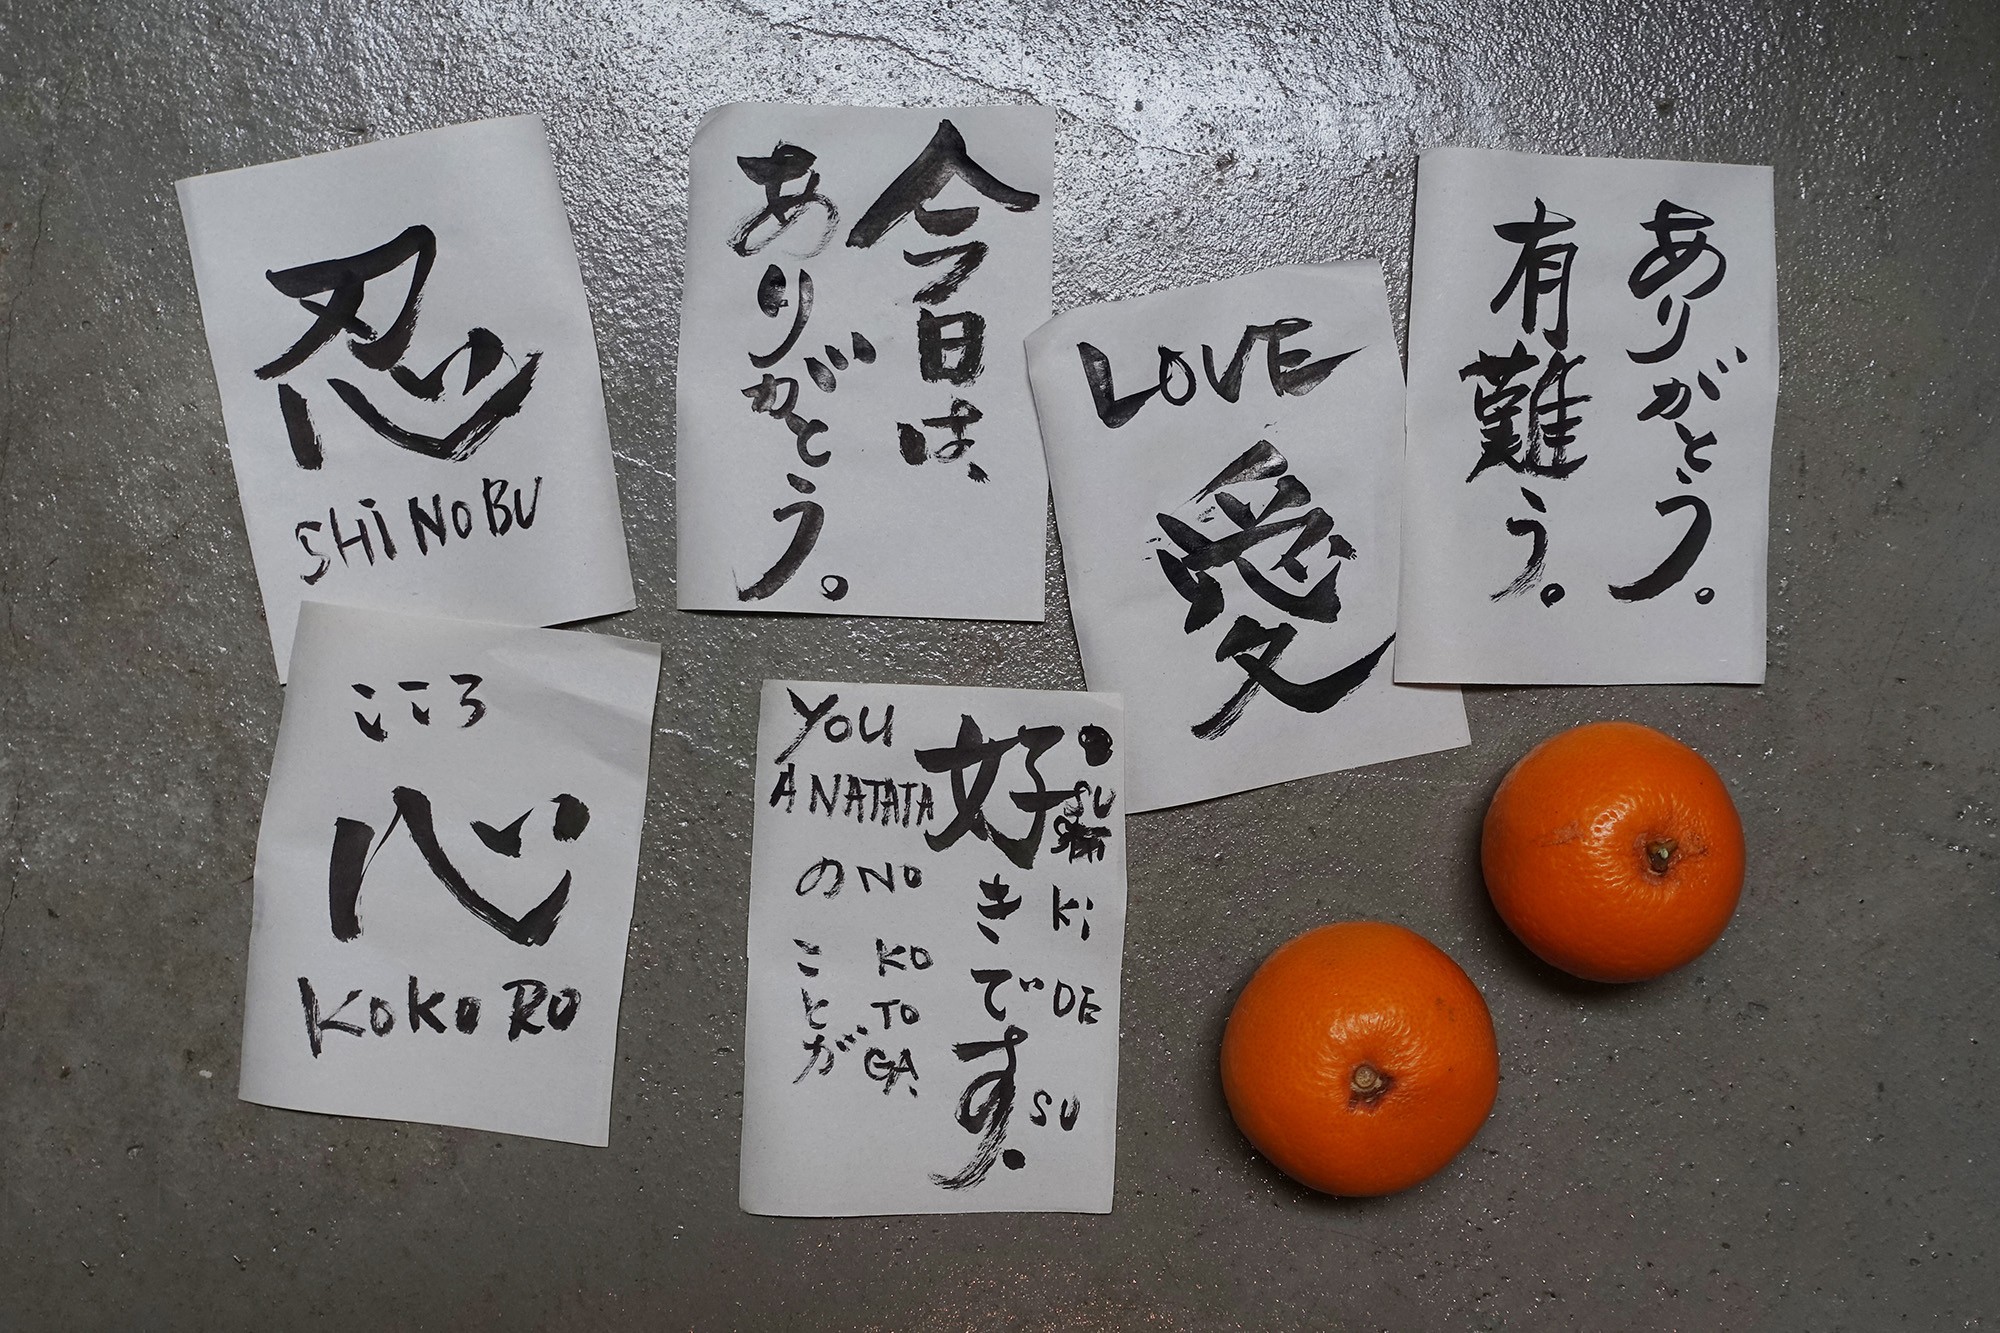 忍
SHiNOBU
今日は、
ありがとう。
LOVE
愛
ありがとう。
有難う。
こころ
心
KOKORO
好きです.
SU
Ki
DE
SU
YOU
ANATATA
の NO
ことが
KO
TO
GA.